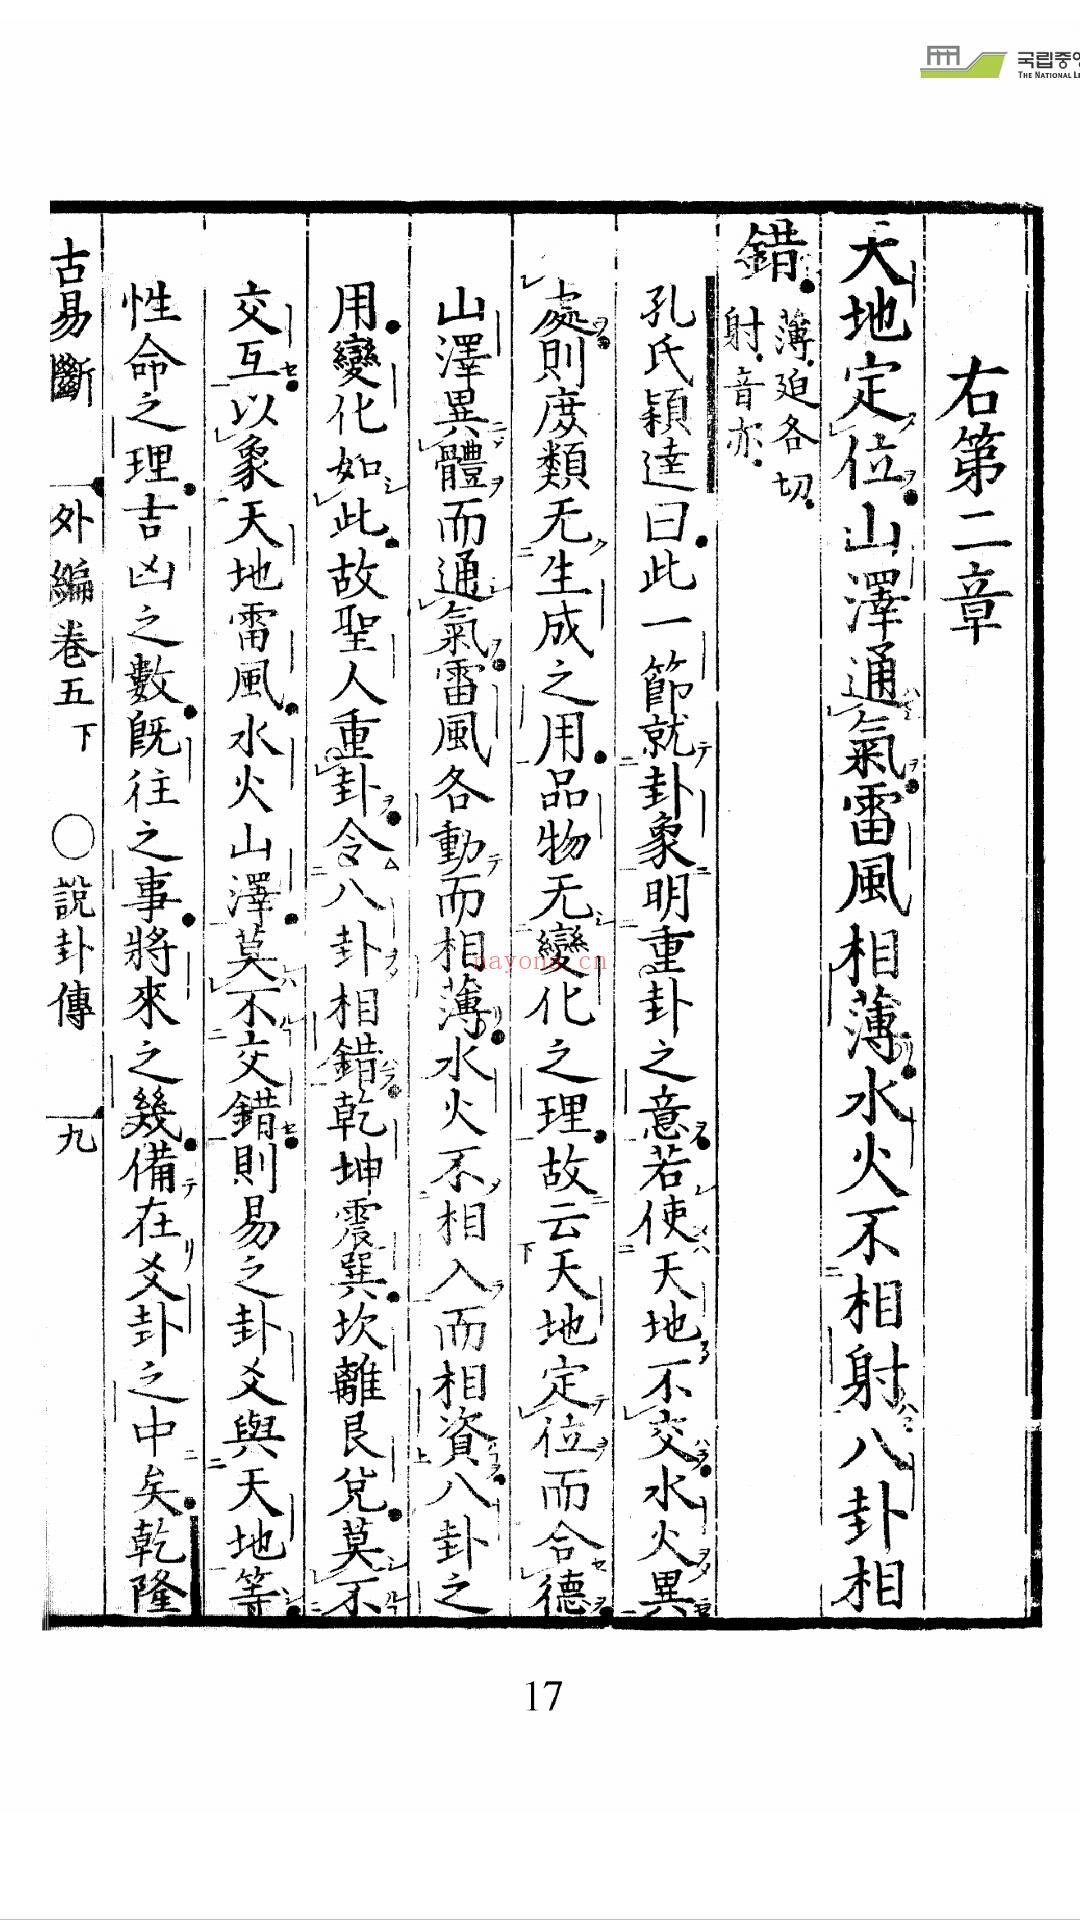 국립중앙
THE NATIONAL LI
右第二章
天地定位山澤通氣雷風相薄水火不相射八卦相
錯薄迫各切射音亦
孔氏穎達曰此一節就卦象明重卦之意若使天地不交水火異
處則庶類无生成之用品物无變化之理故云天地定位而合德
山澤異體而通氣雷風各動而相薄水火不相入而相資八卦之
用變化如此故聖人重卦令八卦相錯乾坤震巽坎離艮兌莫不
交互以象天地雷風水火山澤莫不交錯則易之卦爻與天地等
性命之理吉凶之數既往之事將來之幾備在爻卦之中矣乾隆
古易斷 外編卷五下 ○說卦傳 九
nayona.cn
17